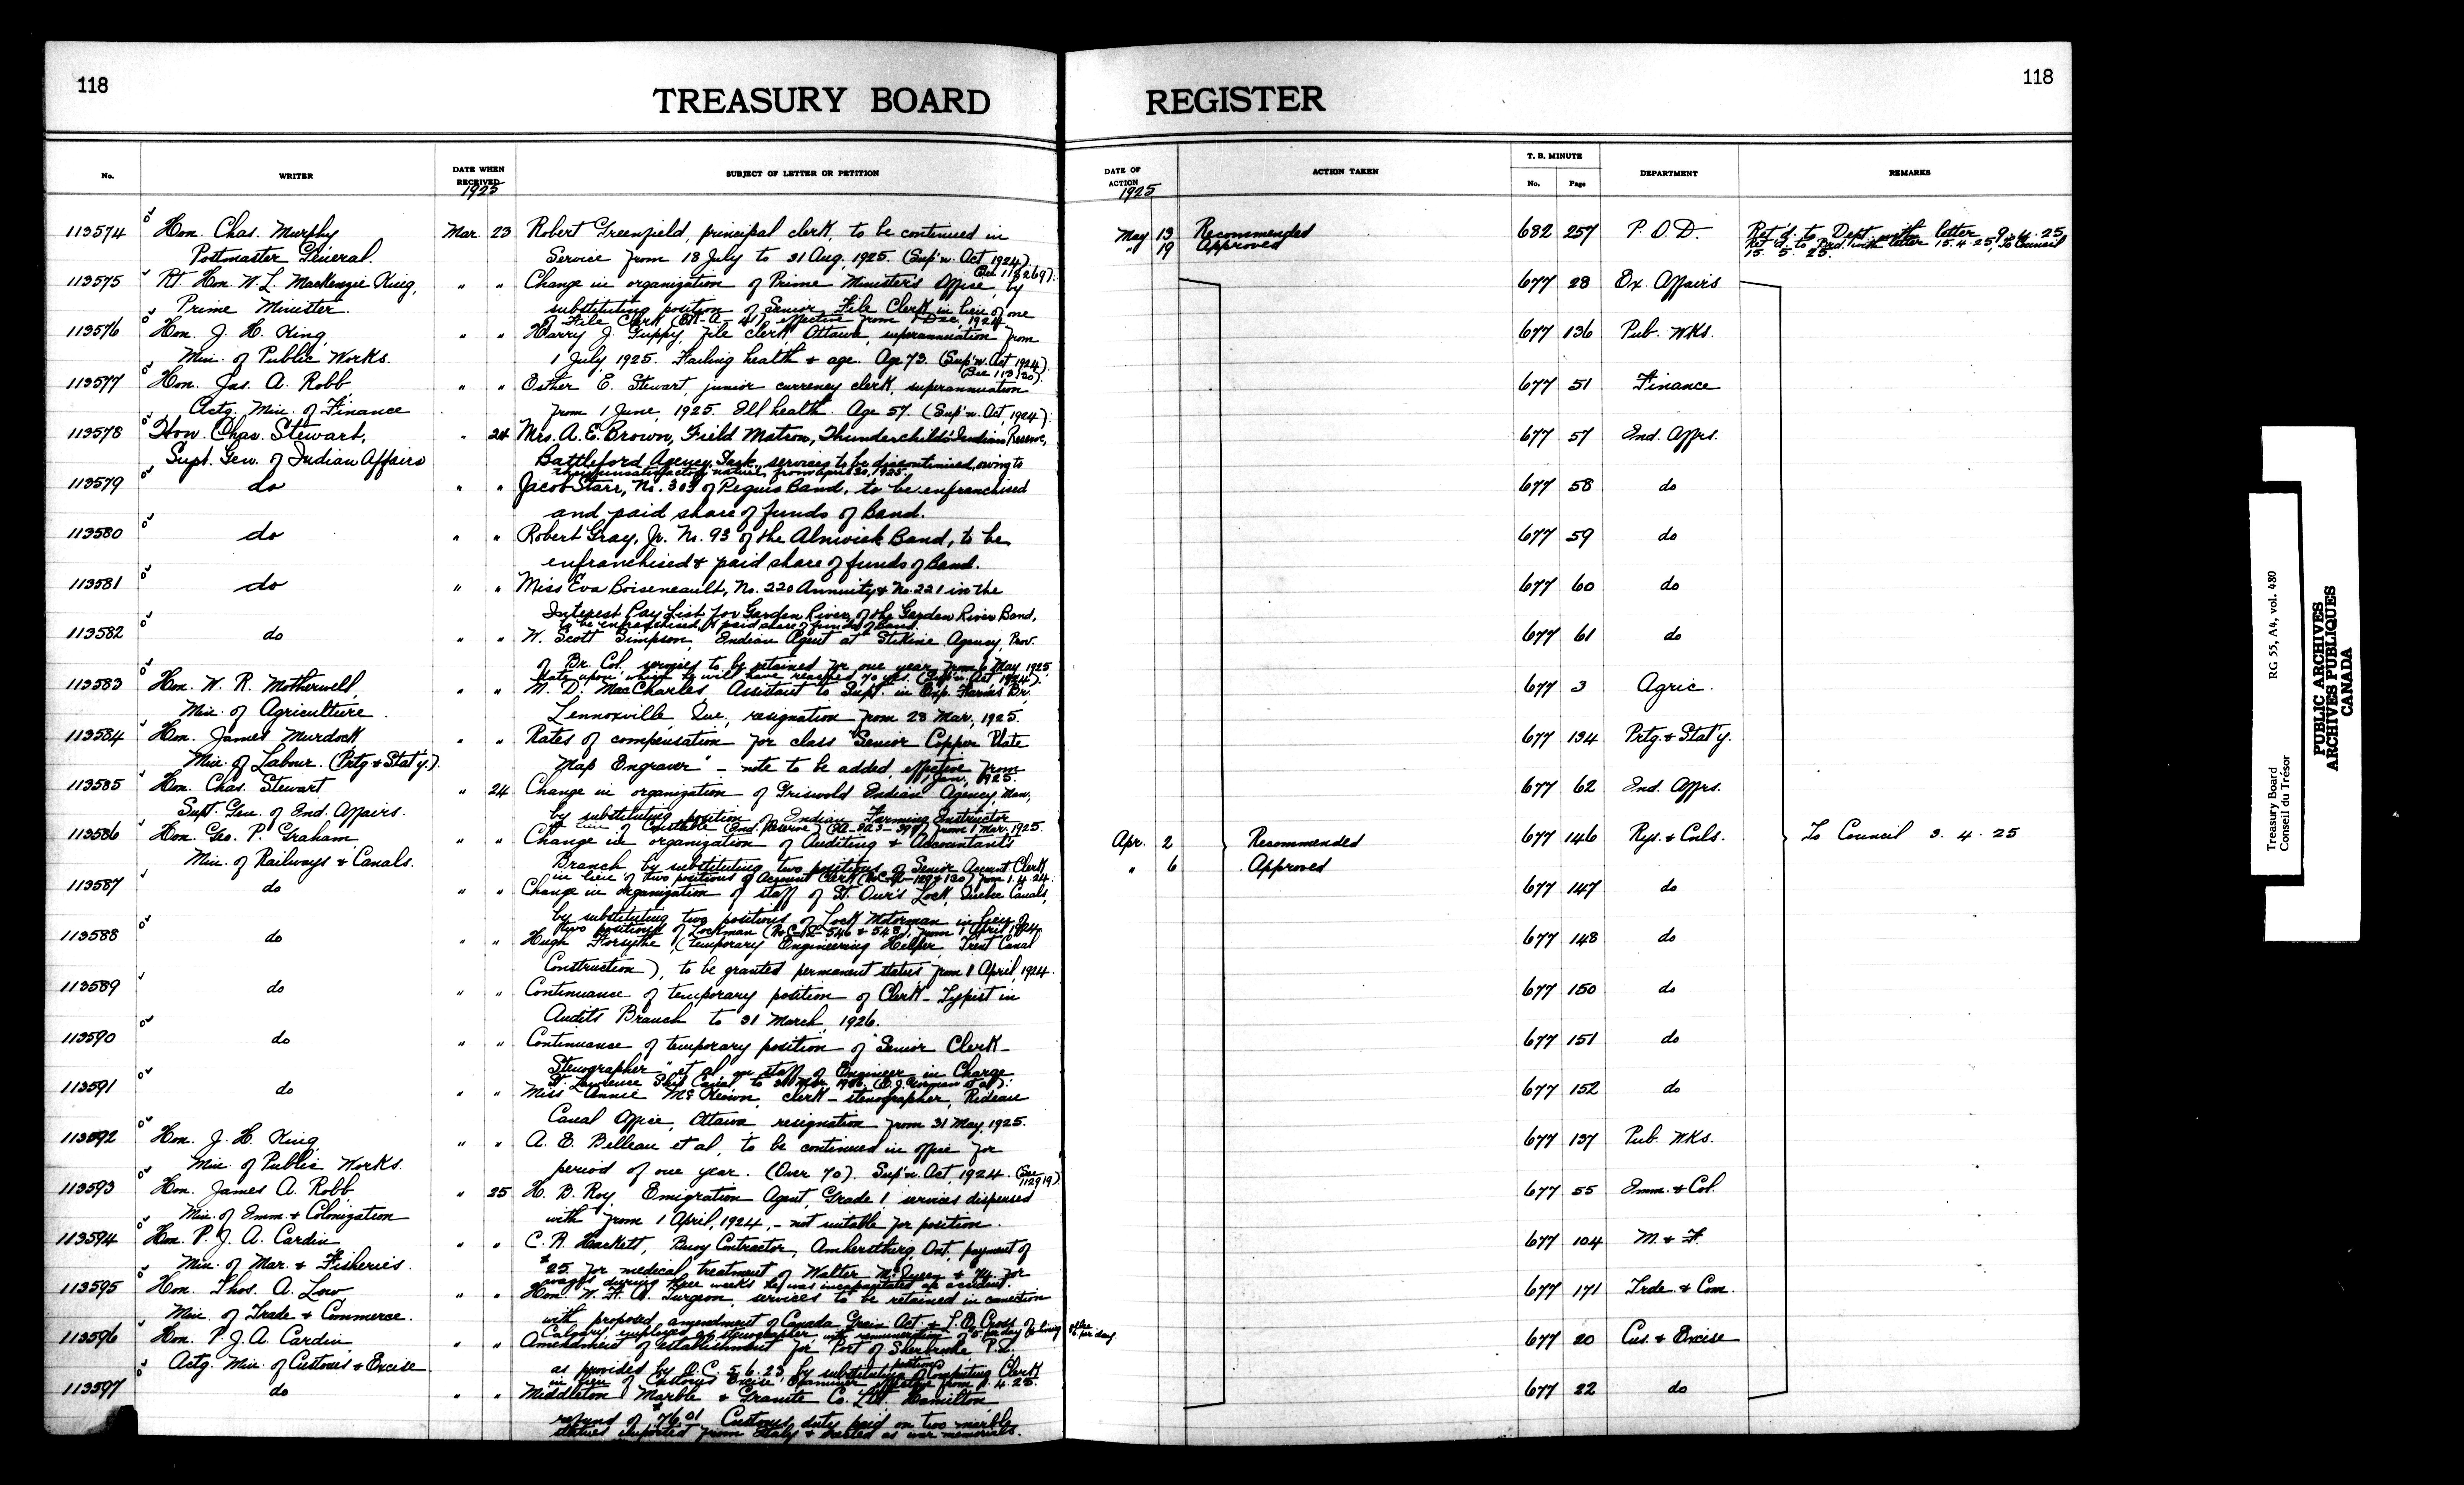 118
118
TREASURY BOARD REGISTER
No.
WRITER
DATE WHEN RECEIVED
1925
SUBJECT OF LETTER OR PETITION
DATE OF ACTION
1925
ACTION TAKEN
T. B. MINUTE
No.
Page
DEPARTMENT
REMARKS
113574 Hon. Chas. Murphy Mar. 23 Robert Greenfield, principal clerk, to be continued in May 13 Recommended 682 257 P.O.D. Ret'd. to Dept. with letter 9.4.25,
Postmaster General. Service from 18 July to 31 Aug, 1925. (Sup'n. Act 1924) " 19 Approved Ret'd. to Brd. with letter 15.4.25, To Council
15.5.25.
113575 Rt. Hon. W. L. MacKenzie King, " " Change in organization of Prime Minister's Office, by 677 28 Ex. Affairs
Prime Minister. substituting position of Senior File Clerk in lieu of one
of File Clerk effective from 1 Dec, 1924.
113576 Hon. J. H. King, " " Harry J. Guppy, file clerk, Ottawa, superannuation from 677 136 Pub. Wks.
Min. of Public Works. 1 July, 1925. Failing health & age. Age 73. (Sup'n. Act 1924)
113577 Hon. Jas. A. Robb " " Esther E. Stewart, junior currency clerk, superannuation 677 51 Finance
Actg. Min. of Finance from 1 June, 1925. Ill health. Age 57. (Sup'n. Act, 1924)
113578 Hon. Chas. Stewart, " 24 Mrs. A. E. Brown, Field Matron, Thunderchild's Indian Reserve, 677 57 Ind. Affrs.
Supt. Gen. of Indian Affairs Battleford Agency, Sask., services to be discontinued, owing to
their unsatisfactory nature, from April 30, 1925.
113579 do " " Jacob Starr, No. 303 of Peguis Band, to be enfranchised 677 58 do
and paid share of funds of Band.
113580 do " " Robert Gray, Jr. No. 93 of the Alnwick Band, to be 677 59 do
enfranchised & paid share of funds of Band.
113581 do " " Miss Eva Boiseneault, No. 220 Annuity & No. 221 in the 677 60 do
Interest Pay List for Garden River, of the Garden River Band,
to be enfranchised & paid share of funds of Band.
113582 do " " W. Scott Simpson, Indian Agent at Stikine Agency, Prov. 677 61 do
of Br. Col. services to be retained for one year from 6 May 1925
date upon which he will have reached 70 yrs. (Sup'n. Act 1924).
113583 Hon. W. R. Motherwell, " " M. D. MacCharles, Assistant to Supt. in Exp. Farms Br. 677 3 Agric.
Min. of Agriculture. Lennoxville, Que., resignation from 28 Mar, 1925.
113584 Hon. James Murdock " " Rates of compensation for class "Senior Copper Plate 677 134 Prtg. & Stat'y.
Min. of Labour. (Prtg & Stat'y.). Map Engraver" - note to be added, effective from
1 Jan, 1925.
113585 Hon. Chas. Stewart " 24 Change in organization of Griswold Indian Agency, Man, 677 62 Ind. Affrs.
Supt. Gen. of Ind. Affairs. by substituting position of Indian Farming Instructor
in lieu of Constable (Ind. Reserve) from 1 Mar, 1925.
113586 Hon. Geo. P. Graham " " Change in organization of Auditing & Accountants Apr. 2 Recommended 677 146 Rys. & Cnls. To Council 3.4.25
Min. of Railways & Canals. Branch by substituting two positions of Senior Account Clerk " 6 Approved
in lieu of two positions of Account Clerk from 1.4.24.
113587 do " " Change in organization of staff of St. Our's Lock, Quebec Canals, 677 147 do
by substituting two positions of Lock Motorman in lieu of
two positions of Lockman from 1 April, 1924.
113588 do " " Hugh Forsythe, (temporary Engineering Helper, Trent Canal 677 148 do
Construction), to be granted permanent status from 1 April, 1924.
113589 do " " Continuance of temporary position of Clerk-Typist in 677 150 do
Audits Branch to 31 March, 1926.
113590 do " " Continuance of temporary position of "Senior Clerk- 677 151 do
Stenographer" et al on staff of Engineer in Charge
St. Lawrence Ship Canal to 31 Mar, 1926.
113591 do " " Miss Annie McKeown, clerk-stenographer, Rideau 677 152 do
Canal Office, Ottawa resignation from 31 May, 1925.
113592 Hon. J. H. King " " A. E. Belleau et al, to be continued in office for 677 137 Pub. Wks.
Min. of Public Works. period of one year. (Over 70). Sup'n. Act, 1924. (See 112919)
113593 Hon. James A. Robb " 25 H. B. Roy Emigration Agent, Grade 1 services dispensed 677 55 Imm. & Col.
Min. of Imm. & Colonization with from 1 April, 1924, - not suitable for position.
113594 Hon. P. J. A. Cardin " " C. R. Hackett, Buoy Contractor, Amherstburg, Ont., payment of 677 104 M. & F.
Min. of Mar. & Fisheries. $25. for medical treatment of Walter McQueen & for
wages during three weeks he was incapacitated
113595 Hon. Thos. A. Low " " Hon. W. F. A. Turgeon, services to be retained in connection 677 171 Trde & Com.
Min. of Trade & Commerce. with proposed amendment of Canada Grain Act
Calgary, employed as stenographer with remuneration of
113596 Hon. P. J. A. Cardin " " Amendment of establishment for Port of Sherbrooke P.Q. 677 20 Cus. & Excise
Actg. Min. of Customs & Excise as provided by O.C. 5.6.23, by substituting position of Computing Clerk
in lieu of Customs Excise Examiner effective from 1.4.25.
113597 do " " Middleton Marble & Granite Co. Ltd. Hamilton 677 22 do
refund of $76.01 Customs duty paid on two marble
statues imported from Italy & erected as war memorials.
Treasury Board
Conseil du Trésor
RG 55, A4, vol. 480
PUBLIC ARCHIVES
ARCHIVES PUBLIQUES
CANADA